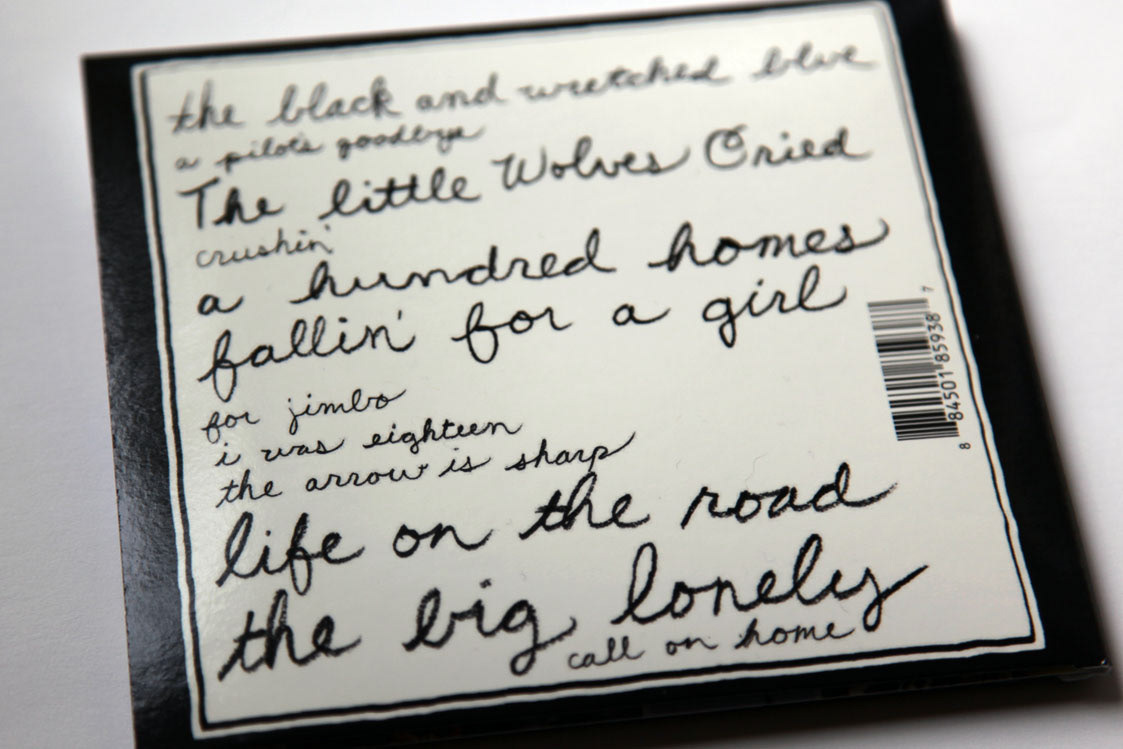 the black and wretched blue
a pilot's goodbye
The little Wolves Cried
crushin'
a hundred homes
fallin' for a girl
for jimbo
i was eighteen
the arrow is sharp
life on the road
the big lonely
call on home
8 84501 85938 7